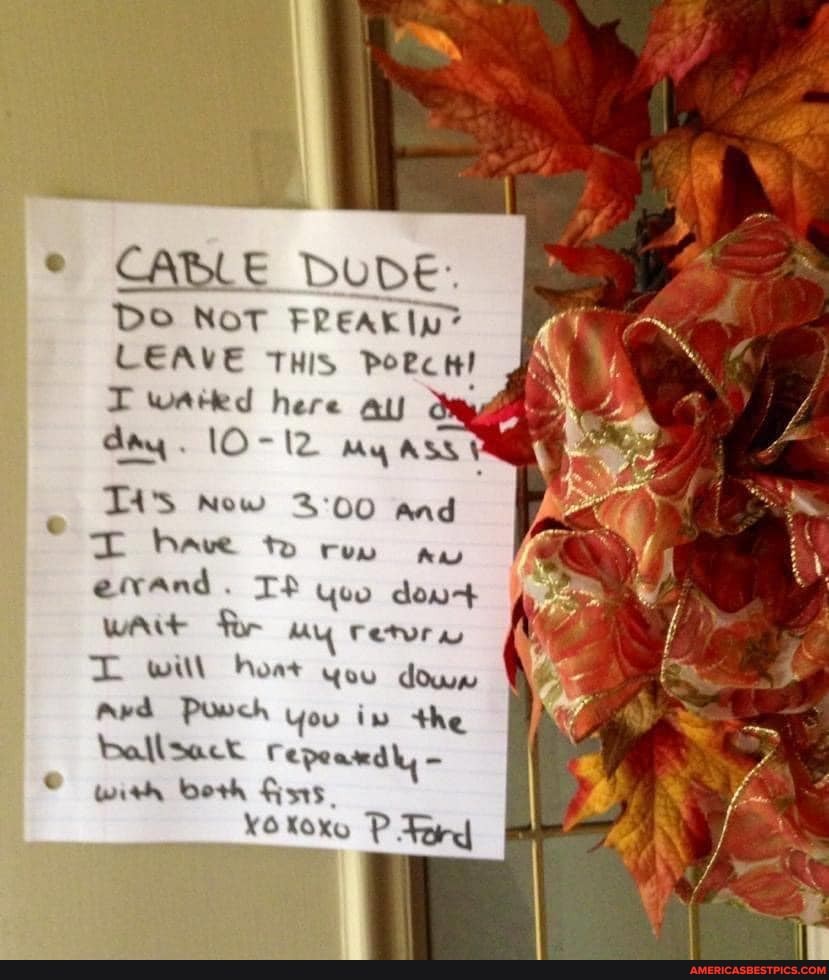 CABLE DUDE:
DO NOT FREAKIN'
LEAVE THIS PORCH!
I waited here All
dAy. 10-12 My ASS!
It's Now 3:00 And
I hAve to run AN
errand. If you don't
wait for my return
I will hunt you down
And punch you in the
ballsack repeatedly-
with both fists.
xoxoxo P. Ford
AMERICASBESTPICS.COM